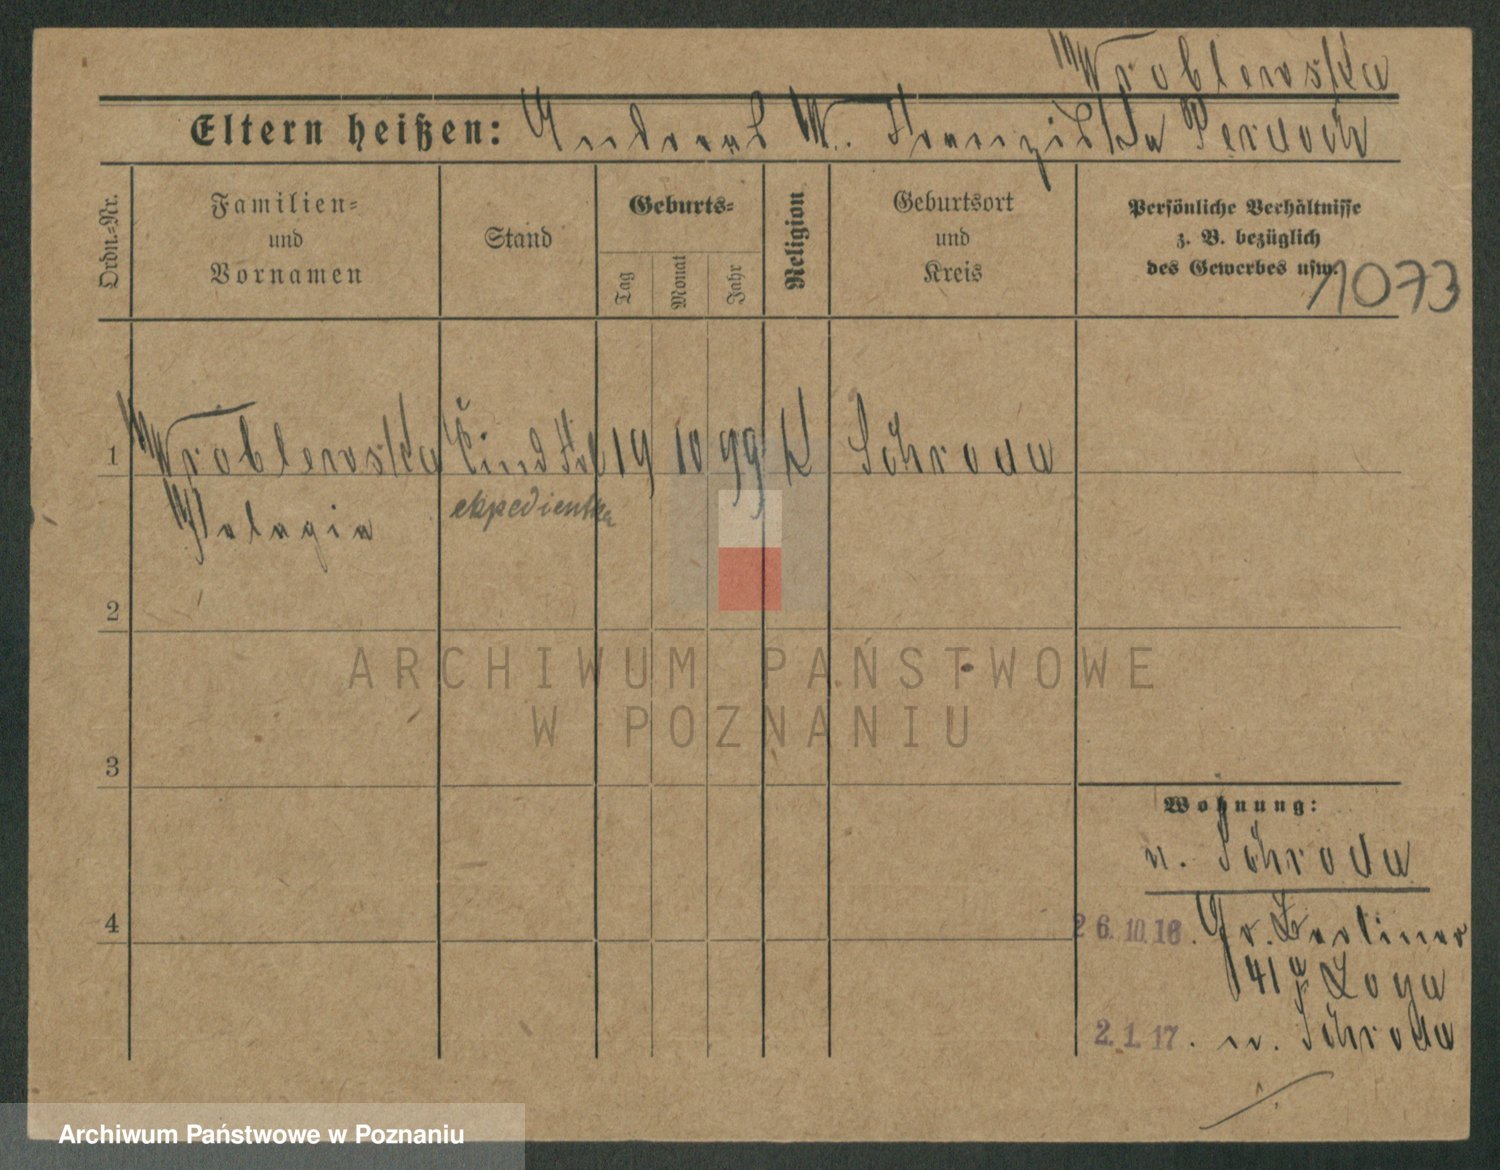 Wroblewska
Eltern heißen: Andreas W. Franziska Perdoch
Ordn.-Nr.
Familien-
und
Vornamen
Stand
Geburts-
Tag
Monat
Jahr
Religion
Geburtsort
und
Kreis
Persönliche Verhältnisse
z. B. bezüglich
des Gewerbes usw.
1073
1 Wroblewska 19 10 99 K Schroda
Pelagia ekpedientka
2
3
4
Wohnung:
n. Schroda
26.10.16. Gr. Berliner
41 Loga
2.1.17. n. Schroda
ARCHIWUM PAŃSTWOWE
W POZNANIU
Archiwum Państwowe w Poznaniu